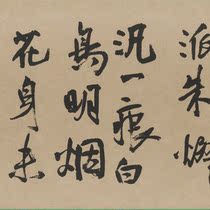 派朱燃
汎一痕白
鳥明烟
花身未